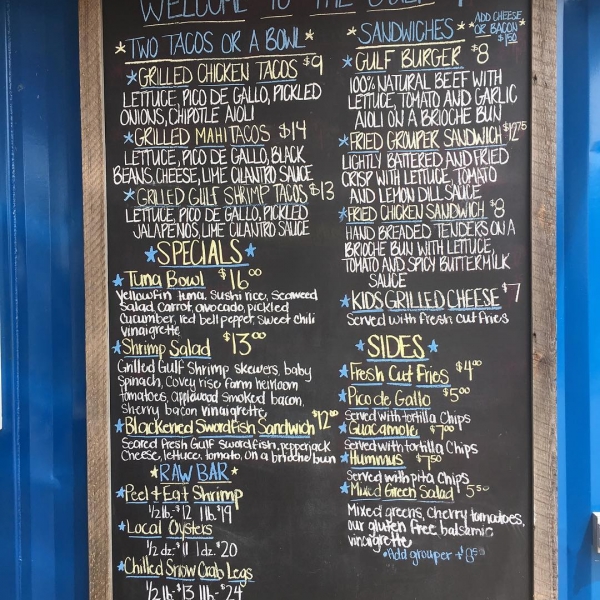 WELCOME TO THE GULF
TWO TACOS OR A BOWL
GRILLED CHICKEN TACOS $9
LETTUCE, PICO DE GALLO, PICKLED
ONIONS, CHIPOTLE AIOLI
GRILLED MAHI TACOS $14
LETTUCE, PICO DE GALLO, BLACK
BEANS, CHEESE, LIME CILANTRO SAUCE
GRILLED GULF SHRIMP TACOS $13
LETTUCE, PICO DE GALLO, PICKLED
JALAPENOS, LIME CILANTRO SAUCE
SPECIALS
Tuna Bowl $16.00
Yellowfin tuna, Sushi rice, Seaweed
Salad, carrot, avocado, pickled
Cucumber, red bell pepper, sweet chili
vinaigrette
Shrimp Salad $13.00
Grilled Gulf Shrimp skewers, baby
Spinach, Covey rise farm heirloom
tomatoes, applewood smoked bacon,
Sherry bacon vinaigrette
Blackened Swordfish Sandwich $12.00
Seared Fresh Gulf Swordfish, pepperjack
Cheese, lettuce, tomato, on a brioche bun
RAW BAR
Peel + Eat Shrimp
1/2 lb- $12 1 lb. $19
Local Oysters
1/2 dz- $11 1 dz. $20
Chilled Snow Crab Legs
1/2 lb- $13 1 lb- $24
SANDWICHES
ADD CHEESE
OR BACON
$1.50
GULF BURGER $8
100% NATURAL BEEF WITH
LETTUCE, TOMATO AND GARLIC
AIOLI ON A BRIOCHE BUN
FRIED GROUPER SANDWICH $12.75
LIGHTLY BATTERED AND FRIED
CRISP WITH LETTUCE, TOMATO
AND LEMON DILL SAUCE
FRIED CHICKEN SANDWICH $8
HAND BREADED TENDERS ON A
BRIOCHE BUN WITH LETTUCE,
TOMATO AND SPICY BUTTERMILK
SAUCE
KIDS GRILLED CHEESE $7
Served with fresh cut fries
SIDES
Fresh Cut Fries $4.00
Pico de Gallo $5.00
Served with tortilla Chips
Guacamole $7.00
Served with tortilla Chips
Hummus $7.50
Served with pita Chips
Mixed Green Salad $5.50
Mixed greens, Cherry tomatoes,
our gluten free balsamic
vinaigrette
*Add grouper +8.50